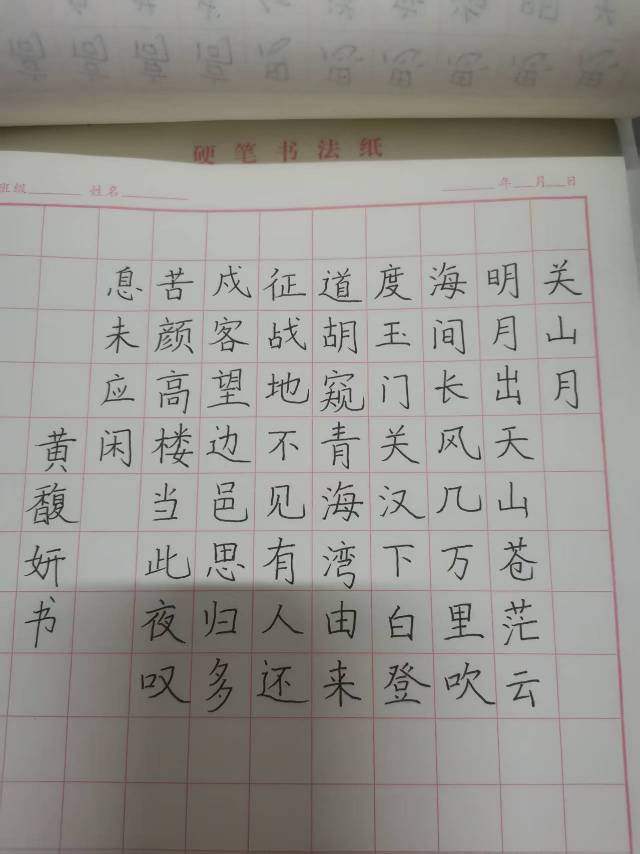 硬笔书法纸
班级 姓名 年 月 日
关山月
明月出天山苍茫云
海间长风几万里吹
度玉门关汉下白登
道胡窥青海湾由来
征战地不见有人还
戍客望边邑思归多
苦颜高楼当此夜叹
息未应闲
黄馥妍书